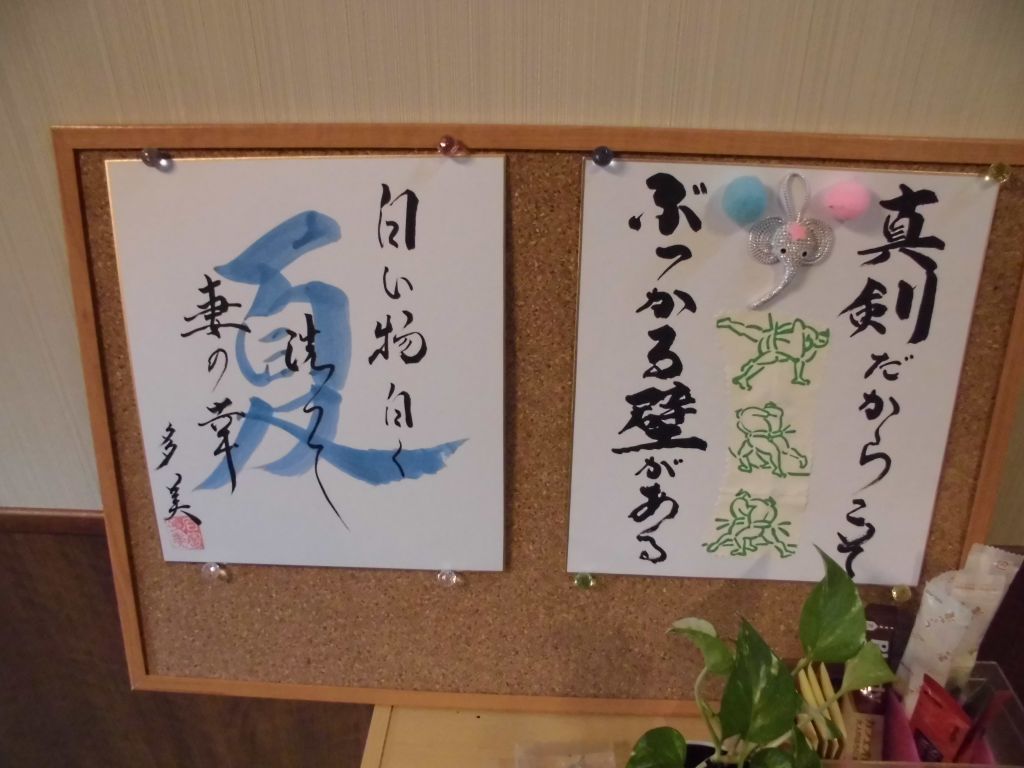 真剣だからこそ
ぶつかる壁がある
白い物白く
洗って
妻の幸
夏
多美